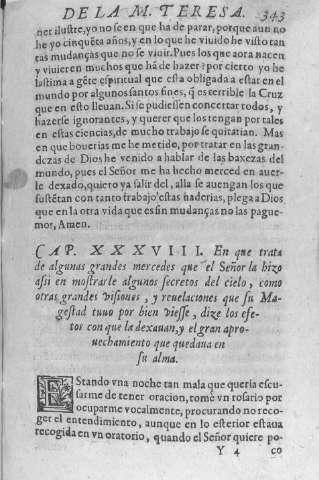 DE LA M. TERESA. 343
ner ilustre, yo no se en que ha de parar, porque aun no
he yo cinquẽta años, y en lo que he viuido he visto tan
tas mudanças que no se viuir. Pues los que aora nacen
y viuieren muchos que há de hazer? por cierto yo he
lastima a gẽte espiritual que està obligada a estar en el
mundo por algunos santos fines, q̃ es terrible la Cruz
que en esto lleuan. Si se pudiessen concertar todos, y
hazerse ignorantes, y querer que los tengan por tales
en estas ciencias, de mucho trabajo se quitarian. Mas
en que bouerias me he metido, por tratar en las gran-
dezas de Dios he venido a hablar de las baxezas del
mundo, pues el Señor me ha hecho merced en auer-
le dexado, quiero ya salir del, alla se auengan los que
sustẽtan con tanto trabajo estas naderias, plega a Dios
que en la otra vida que es sin mudanças no las pague-
mor, Amen.
CAP. XXXVIII. En que trata
de algunas grandes mercedes que el Señor la hizo
assi en mostrarle algunos secretos del cielo, como
otras grandes visiones, y reuelaciones que su Ma-
gestad tuuo por bien viesse, dize los efe-
tos con que la dexauan, y el gran apro-
uechamiento que quedaua en
su alma.
EStando vna noche tan mala que queria escu-
sarme de tener oracion, tomè vn rosario por
ocuparme vocalmente, procurando no reco-
ger el entendimiento, aunque en lo esterior estaua
recogida en vn oratorio, quando el Señor quiere po-
Y 4 co